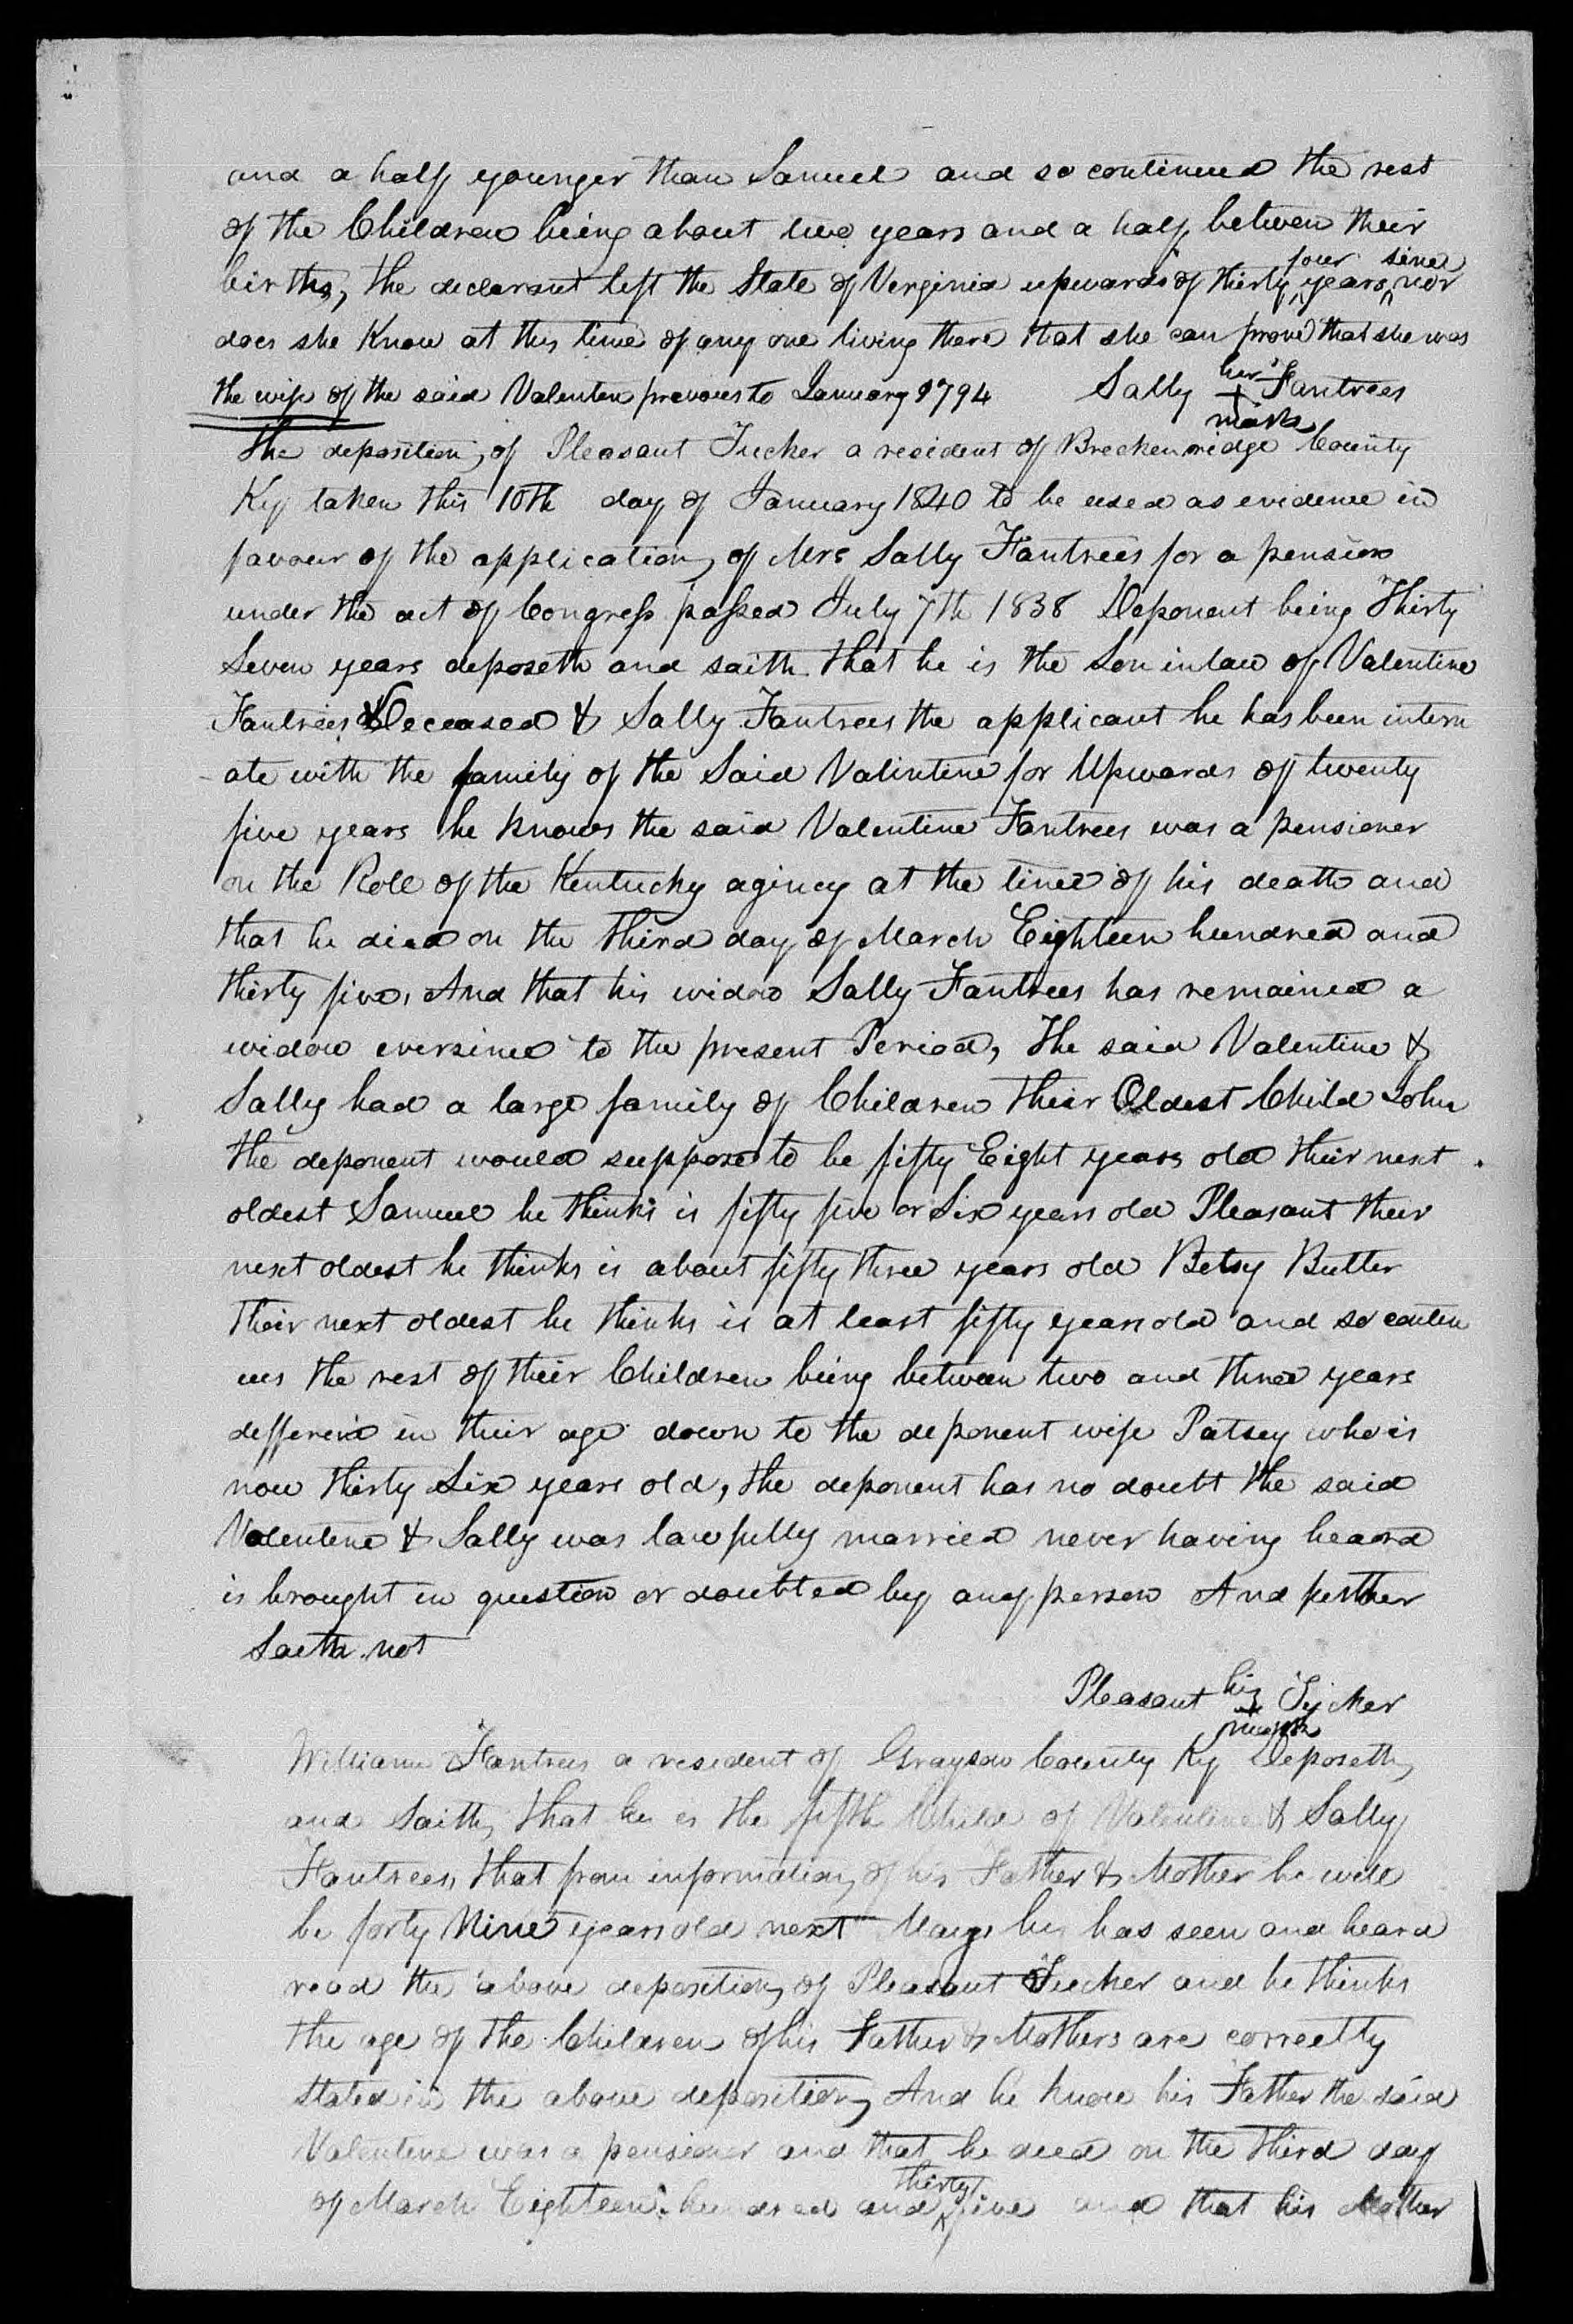 and a half younger than Samuel and so continued the rest
of the Children being about two years and a half between their
births, the declarant left the State of Verginia upwards of thirty four years since nor
does she know at this time of any one living there that she can prove that she was
the wife of the said Valenten prevous to January 1794 Sally her + mark Fantrees
The deposition of Pleasant Tucker a resident of Breckenridge County
Ky taken this 10th day of January 1840 to be used as evidence in
favour of the application of Mrs Sally Fantrees for a pension
under the act of Congress passed July 7th 1838 Deponent being Thirty
Seven years deposeth and saith that he is the Son in law of Valentine
Fantrees Deceased & Sally Fantrees the applicant he has been intem
-ate with the family of the Said Valintine for Upwards of twenty
five years he knows the said Valentine Fantrees was a pensioner
on the Role of the Kentucky agincy at the time of his death and
that he died on the third day of March Eighteen hundred and
thirty five, And that his widow Sally Fantrees has remained a
widow eversince to the present Period, The said Valentine &
Sally had a large family of Children their Oldest Child John
the deponent would suppose to be fifty Eight years old their next
oldest Samuel he thinks is fifty five or Six years old Pleasant their
next oldest he thinks is about fifty three years old Betsy Butler
their next oldest he thinks is at least fifty years old and so contin
ues the rest of their Children being between two and three years
differine in their age down to the deponent wife Patsey who is
now thirty Six years old, the deponent has no doubt the said
Valentene & Sally was lawfully married never having heard
is brought in question or doubted by any person And further
Saith not
Pleasant his + mark Tucker
William Fantrees a resident of Grayson County Ky Deposeth
and Saith, that he is the fifth Child of Valentine & Sally
Fantrees, that from information of his Father & Mother he will
be forty Nine years old next May, he has seen and heard
read the above deposition of Pleasant Tucker and he thinks
the age of the Children of his Father & Mothers are correctly
Stated in the above deposition, And he know his Father the said
Valentine was a pensioner and that he died on the third day
of March Eighteen hundred and thirty five and that his Mother